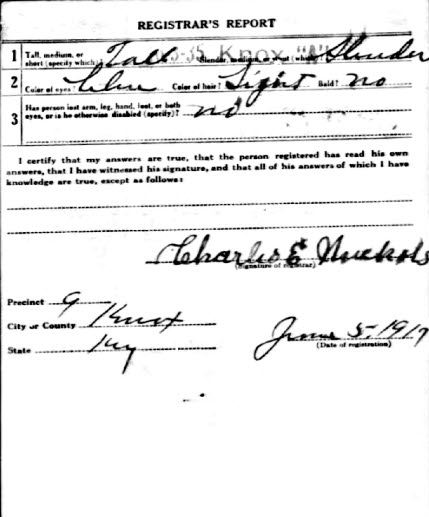 REGISTRAR'S REPORT
1 Tall, medium, or short (specify which)? Tall Slender, medium, or stout (which)? Slender
35 Knox "A"
2 Color of eyes? Blue Color of hair? Light Bald? no
3 Has person lost arm, leg, hand, foot, or both eyes, or is he otherwise disabled (specify)? no
I certify that my answers are true, that the person registered has read his own
answers, that I have witnessed his signature, and that all of his answers of which I have
knowledge are true, except as follows:
Charles E Nuckols
(Signature of registrar)
Precinct 9
City or County Knox
State Ky
June 5, 1917
(Date of registration)